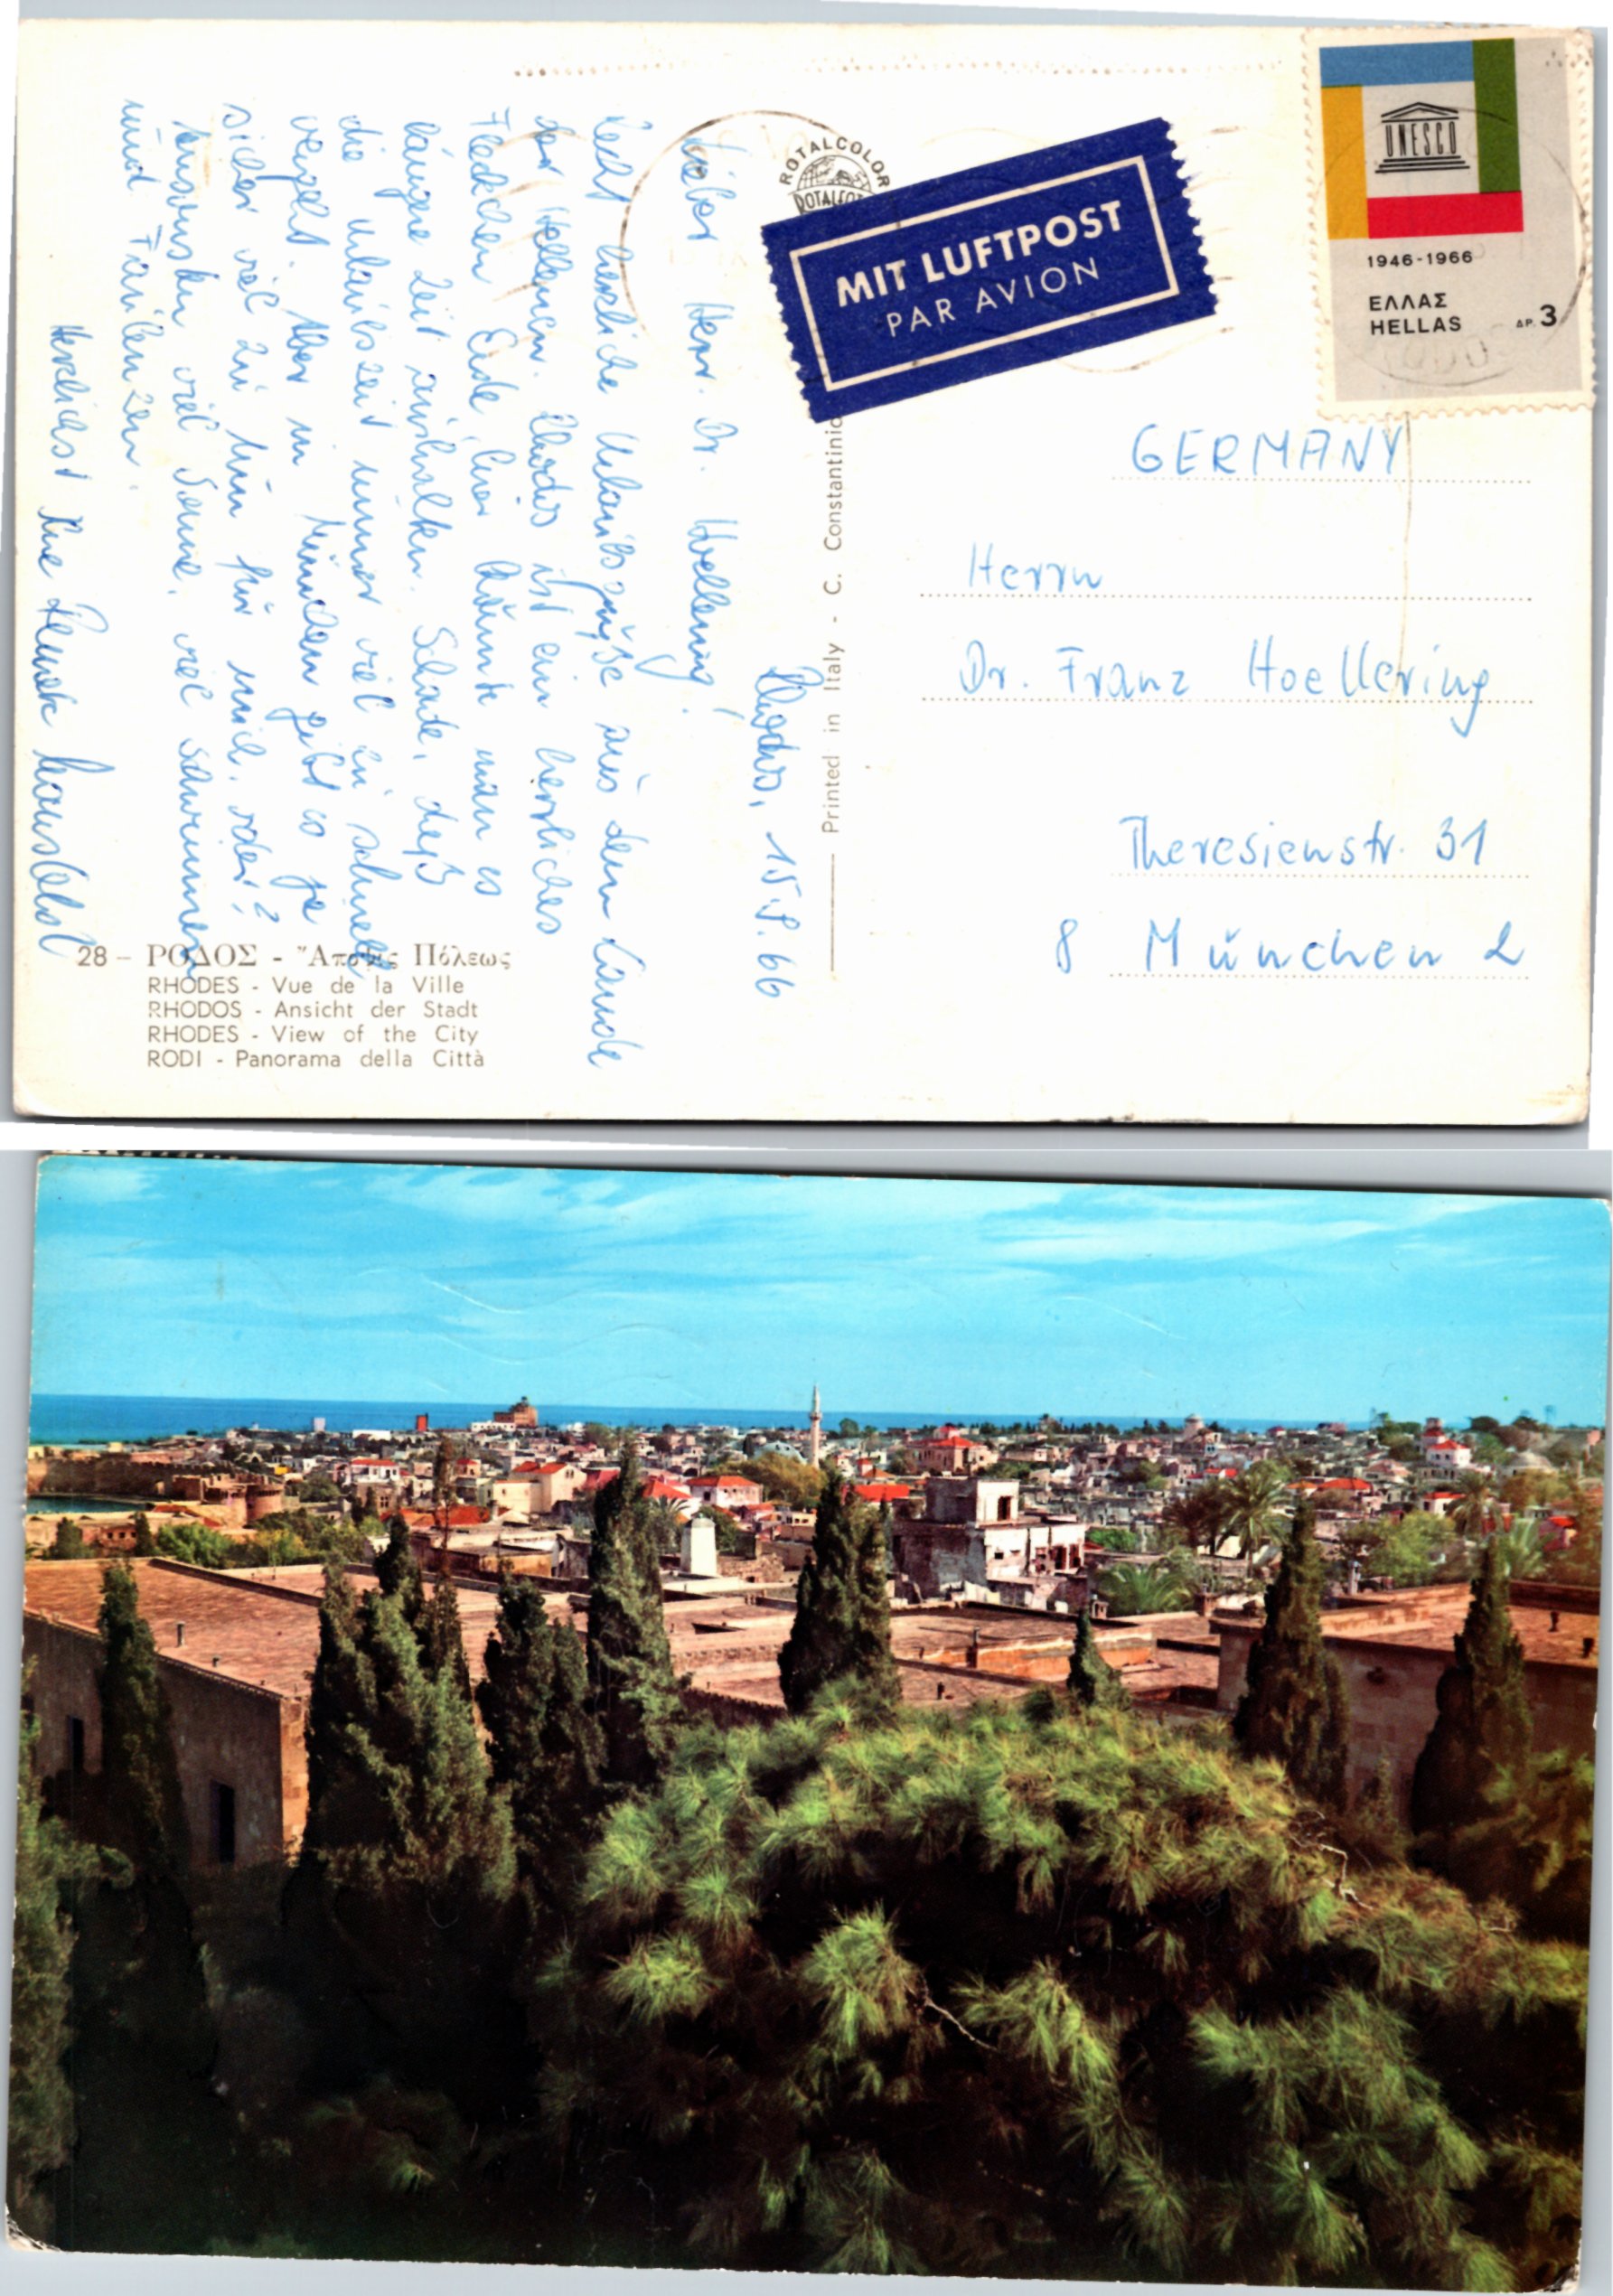 ROTALCOLOR
MIT LUFTPOST
PAR AVION
UNESCO
1946-1966
ΕΛΛΑΣ
HELLAS
ΔΡ. 3
Rhodos, 15.9.66
Lieber Herr Dr. Hoellering!
Recht herzliche Urlaubsgrüße aus dem Lande
der Hellenen. Rhodos ist ein herrliches
Fleckchen Erde, hier könnte man es
längere Zeit aushalten. Schade, daß
die Urlaubszeit immer viel zu schnell
vergeht. Aber in München gibt es ja
sicher viel zu tun für mich, oder?
Ansonsten viel Sonne, viel schwimmen
und Faulenzen.
Herzlichst Ihre
Printed in Italy - C. Constantinid
GERMANY
Herrn
Dr. Franz Hoellering
Theresienstr. 31
8 München 2
28 – ΡΟΔΟΣ - Ἄποψις Πόλεως
RHODES - Vue de la Ville
RHODOS - Ansicht der Stadt
RHODES - View of the City
RODI - Panorama della Città